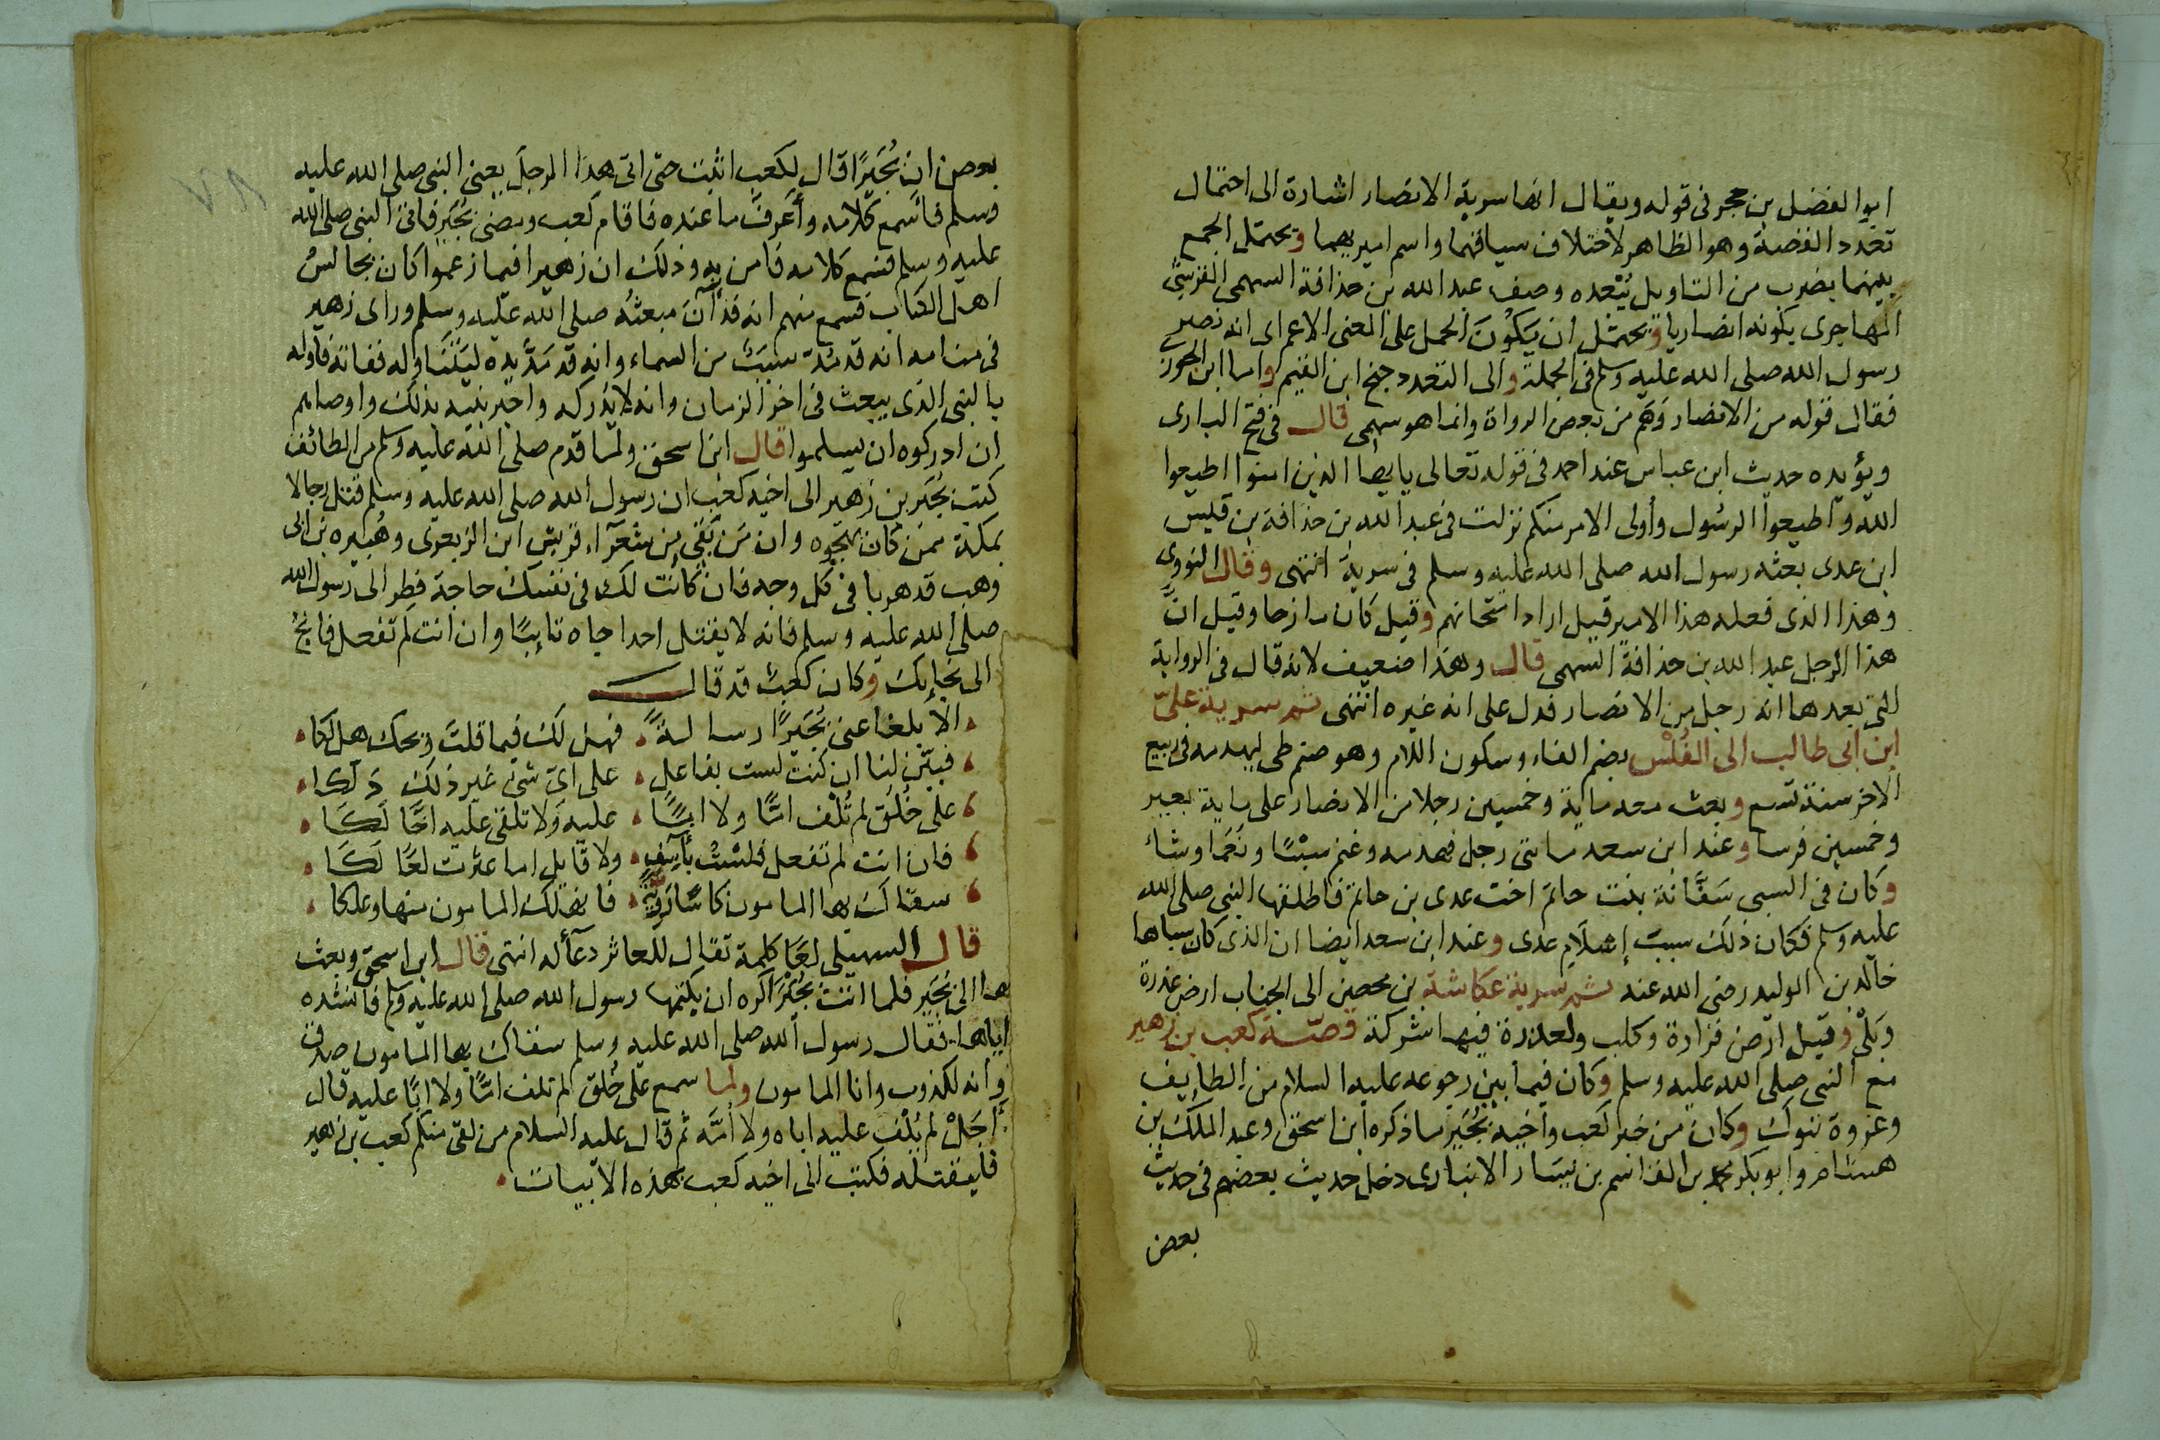 ابوا الفضل بن حجر فى قوله ويقال انها سرية الانصار اشارة الى احتمال
تعدد القضية وهو الظاهر لاختلاف سياقهما واسم اميريهما ويحتمل الجمع
بينهما بضرب من التاويل يُبْعده وصف عبد الله بن حذافة السهمى القرشىّ
المهاجرى بكونه انصاريا ويحتمل ان يَكُونَ الحمل على المعنى الاعم اى انه نصر
رسول الله صلى الله عليه وسلم فى الجملة والى التعدد جنح ابن القيم واما ابن الجوزى
فقال قوله من الانصار وَهَم من بعض الرواة وانما هو سهمى قال فى فتح البارى
ويؤيده حديث ابن عباس عند احمد فى قوله تعالى يا ايها الذين امنوا اطيعوا
الله واطيعوا الرسُول وأولى الامر منكم نزلت فى عبد الله بن حذافة بن قيس
ابن عدى بعثه رسول الله صلى الله عليه وسلم فى سرية انتهى وقال النووى
وهذا الذى فعله هذا الامير قيل اراد امتحانهم وقيل كان مازحا وقيل انَّ
هذا الرجل عبد الله بن حذافة السهمى قال وهذا ضعيف لانه قال فى الرواية
التى بعدها انه رجل من الانصار فدل على انه غيره انتهى ثم سرية علىّ
ابن ابى طالب الى الفُلْس بضم الفاء وسكون اللام وهو صنم طى ليهدمه فى ربيع
الاخر سنة تسع وبعث معه ماية وخمسين رجلا من الانصار على ماية بعير
وخمسين فرسا وعند ابن سعد مائتى رجل فهدمه وغنم سبْيًا ونَعَما وشاءً
وكان فى السبى سَفَّانة بنت حاتم اخت عدى بن حاتم فاطلقها النبى صلى الله
عليه وسلم فكان ذلك سببَ إسْلامِ عدى وعند ابن سعد ايضا ان الذى كان سباها
خالد بن الوليد رضى الله عنه ثم سرية عكاشة بن محصن الى الجناب ارض عذرة
وبَلْى وقيل ارض فزارة وكلب ولعذرة فيها شركة قصّة كعب بن زهير
مع النبى صلى الله عليه وسلم وكان فيما بين رجوعه عليه السلام من الطايف
وغزوة تبوك وكان من خبر كعب واخيه بُجَيْر ما ذكره ابن اسحق وعبد الملك بن
هشام وابو بكر محمد بن القاسم بن يَسَار الانبارى دخل حديث بعضهم فى حديث
بعض
بعض ان بُجَيْرًا قال لكعب اثبت حتى اتى هذا الرجلَ يعنى النبى صلى الله عليه
وسلم فاسمع كلامه وأَعرفَ ما عنده فاقام كعب ومضى بُجَير فاتى النبى صلى الله
عليه وسلم فسمع كلامه فامن به وذلك ان زهيرا فيما زعموا كان يجالسُ
اهل الكتاب فسمع منهم انه قد آنَ مبعثُه صلى الله عليه وسلم وراى زهير
فى منامه انه قد مُدّ سبَبٌ من السماء وانه قد مَدَّ يده ليَتَناوله ففاته فاوله
بالنبى الذى يبعث فى اخر الزمان وانه لا يُدركه واخبر بنيه بذلك واوصاهم
ان ادركوه ان يسلموا قال ابن اسحق ولما قدم صلى الله عليه وسلم من الطائف
كتب بُجَير بن زهير الى اخيه كعب ان رسول الله صلى الله عليه وسلم قتل رجالا
بمكة ممن كان يهجُوه وان مَن بَقى من شعرآء قريش ابن الزبعرى وهُبَيره بن ابى
وهب قد هربا فى كل وجه فان كانت لك فى نفسك حاجة فطِر الى رسول الله
صلى الله عليه وسلم فانه لا يقتل احدا جاه تايبًا وان انت لم تفعل فانجُ
الى نجايك وكان كعب قد قال
الا بلغا عنى بُجَيرًا رسالةً فهل لك فيما قلتَ ويحك هل لكا
فبيّن لنا ان كنت لست بفاعل على اىّ شئ غير ذلك دَلّكا
على خُلُقٍ لم تُلْف امًّا ولا ابًا عليه ولا تلقى عليه اخًا لَكَا
فان انت لم تفعل فلسْتُ بآسِفٍ ولا قايل اما عثرت لعًا لَكَا
سقاك بها المامون كاسًا رَويَّةً فانهلك المامون منها وعلكا
قال السهيلى لعًا كلمة تقال للعاثر دعآءً له انتهى قال ابن اسحق وبعث
بها الى بُجَير فلما اتت بُجَيْرًا كره ان يكتمها رسول الله صلى الله عليه وسلم فانشده
اياها فقال رسول الله صلى الله عليه وسلم سقاك بها المامون صدق
وانه لكذوب وانا المامون ولما سمع على خُلق لم تلف امًّا ولا ابًا عليه قال
أجَلْ لم يُلْفِ عليه اباه ولا أُمَّه ثم قال عليه السلام من لقى منكم كعب بن زهير
فليقتله فكتب الى اخيه كعب بهذه الابيات